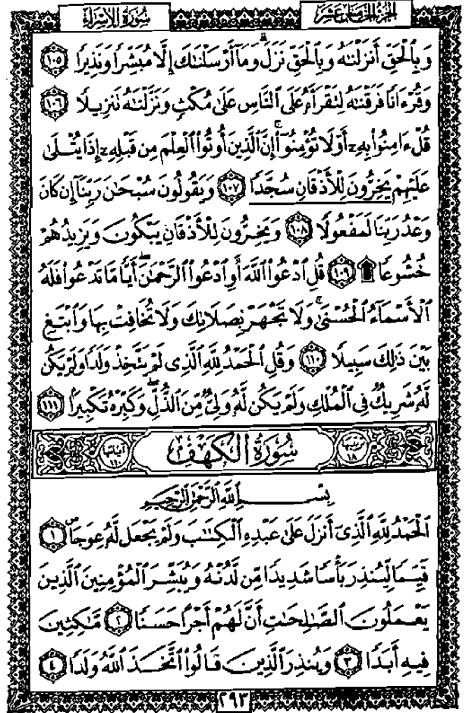 الجزء الخامس عشر
سورة الإسراء
وَبِالْحَقِّ أَنزَلْنَٰهُ وَبِالْحَقِّ نَزَلَ ۗ وَمَا أَرْسَلْنَٰكَ إِلَّا مُبَشِّرًا وَنَذِيرًا ١٠٥
وَقُرْءَانًا فَرَقْنَٰهُ لِتَقْرَأَهُ عَلَى النَّاسِ عَلَىٰ مُكْثٍ وَنَزَّلْنَٰهُ تَنزِيلًا ١٠٦
قُلْ ءَامِنُوا بِهِ أَوْ لَا تُؤْمِنُوا ۚ إِنَّ الَّذِينَ أُوتُوا الْعِلْمَ مِن قَبْلِهِ إِذَا يُتْلَىٰ
عَلَيْهِمْ يَخِرُّونَ لِلْأَذْقَانِ سُجَّدًا ١٠٧ وَيَقُولُونَ سُبْحَٰنَ رَبِّنَا إِن كَانَ
وَعْدُ رَبِّنَا لَمَفْعُولًا ١٠٨ وَيَخِرُّونَ لِلْأَذْقَانِ يَبْكُونَ وَيَزِيدُهُمْ
خُشُوعًا ۩ ١٠٩ قُلِ ادْعُوا اللَّهَ أَوِ ادْعُوا الرَّحْمَٰنَ ۖ أَيًّا مَّا تَدْعُوا فَلَهُ
الْأَسْمَاءُ الْحُسْنَىٰ ۚ وَلَا تَجْهَرْ بِصَلَاتِكَ وَلَا تُخَافِتْ بِهَا وَابْتَغِ
بَيْنَ ذَٰلِكَ سَبِيلًا ١١٠ وَقُلِ الْحَمْدُ لِلَّهِ الَّذِي لَمْ يَتَّخِذْ وَلَدًا وَلَمْ يَكُن
لَّهُ شَرِيكٌ فِي الْمُلْكِ وَلَمْ يَكُن لَّهُ وَلِيٌّ مِّنَ الذُّلِّ ۖ وَكَبِّرْهُ تَكْبِيرًا ١١١
سُورَةُ الْكَهْفِ
بِسْمِ اللَّهِ الرَّحْمَٰنِ الرَّحِيمِ
الْحَمْدُ لِلَّهِ الَّذِي أَنزَلَ عَلَىٰ عَبْدِهِ الْكِتَٰبَ وَلَمْ يَجْعَل لَّهُ عِوَجًا ١
قَيِّمًا لِّيُنذِرَ بَأْسًا شَدِيدًا مِّن لَّدُنْهُ وَيُبَشِّرَ الْمُؤْمِنِينَ الَّذِينَ
يَعْمَلُونَ الصَّٰلِحَٰتِ أَنَّ لَهُمْ أَجْرًا حَسَنًا ٢ مَّٰكِثِينَ
فِيهِ أَبَدًا ٣ وَيُنذِرَ الَّذِينَ قَالُوا اتَّخَذَ اللَّهُ وَلَدًا ٤
٢٩٣